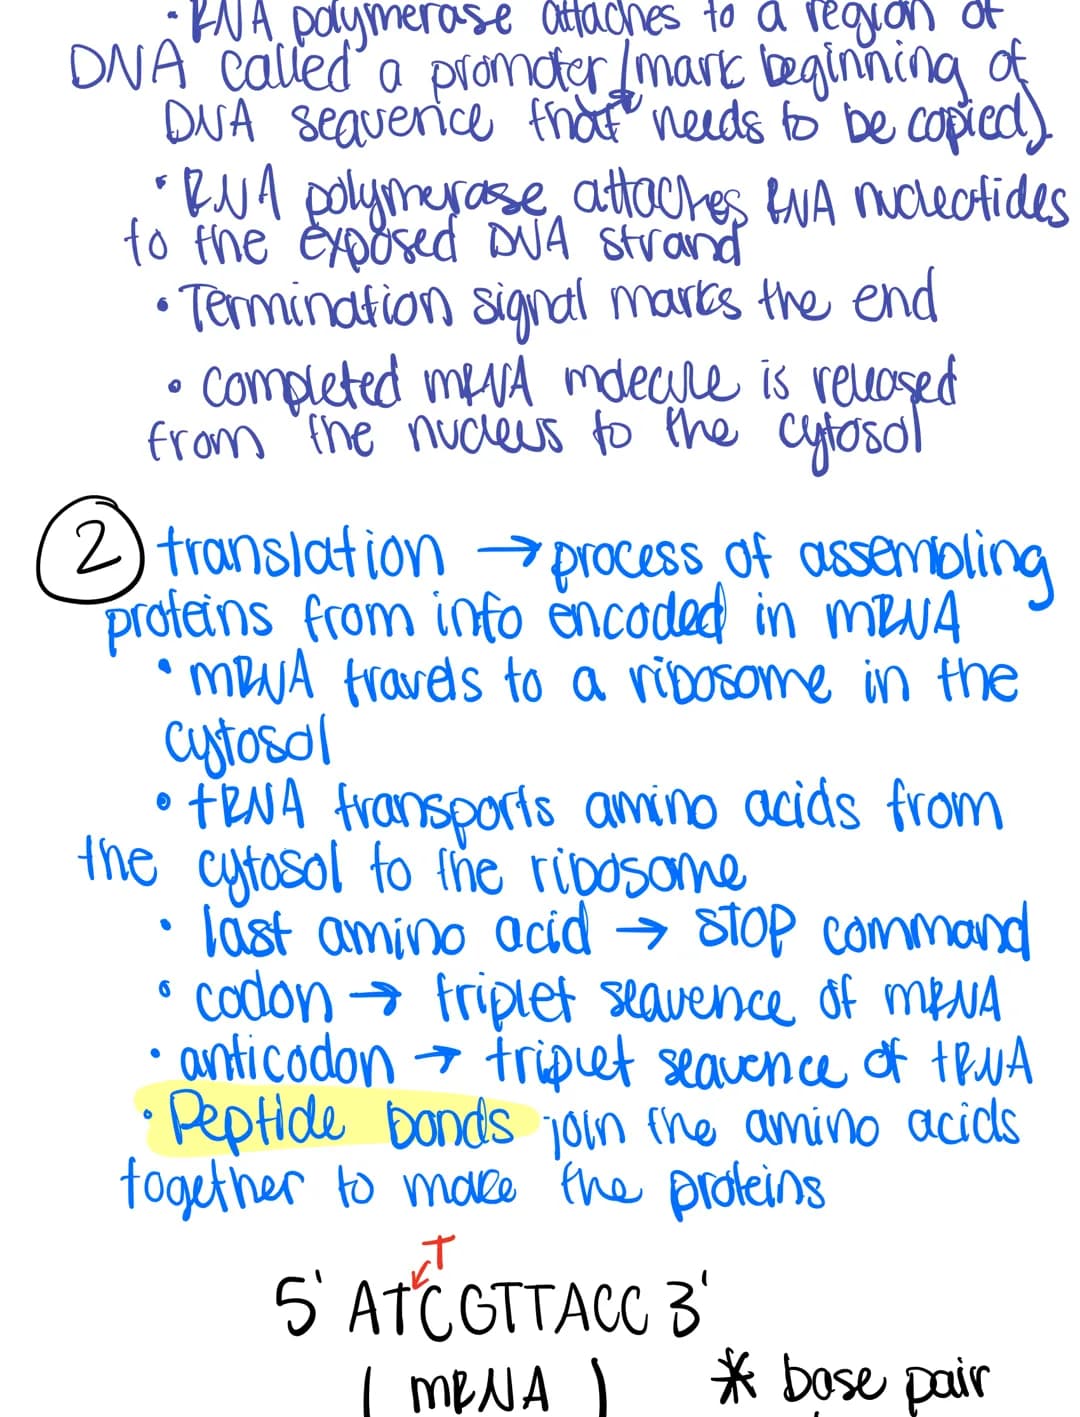 • RNA polymerase attaches to a region of
DNA called a promoter (mark beginning of
DNA sequence that needs to be copied)
• RNA polymerase attaches RNA nucleotides
to the exposed DNA strand
• Termination signal marks the end
• completed mRNA molecule is released
from the nucleus to the cytosol
2 translation → process of assembling
proteins from info encoded in mRNA
• mRNA travels to a ribosome in the
cytosol
• tRNA transports amino acids from
the cytosol to the ribosome
• last amino acid → STOP command
• codon → triplet sequence of mRNA
• anticodon → triplet sequence of tRNA
• Peptide bonds join the amino acids
together to make the proteins
T
5' ATCGTTACC 3'
( mRNA ) * base pair